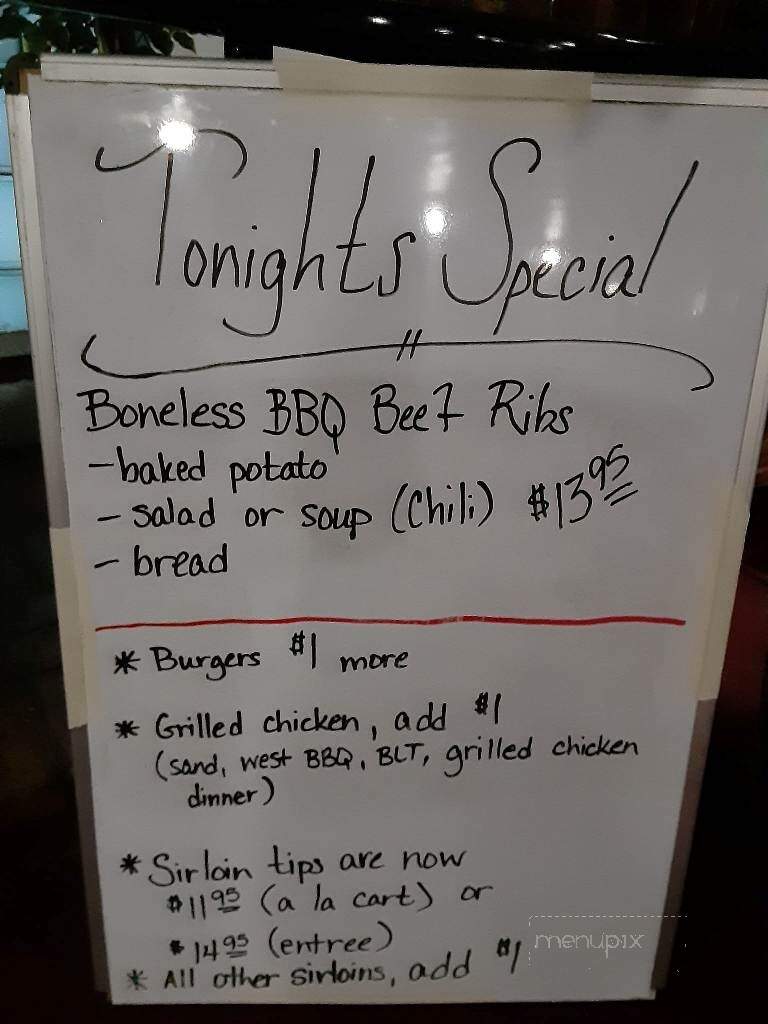 Tonights Special
Boneless BBQ Beef Ribs
- baked potato
- salad or soup (Chili) $13.95
- bread
* Burgers $1 more
* Grilled chicken, add $1
(sand, west BBQ, BLT, grilled chicken
dinner)
* Sirloin tips are now
$11.95 (a la cart) or
$14.95 (entree)
* All other sirloins, add $1
menupix